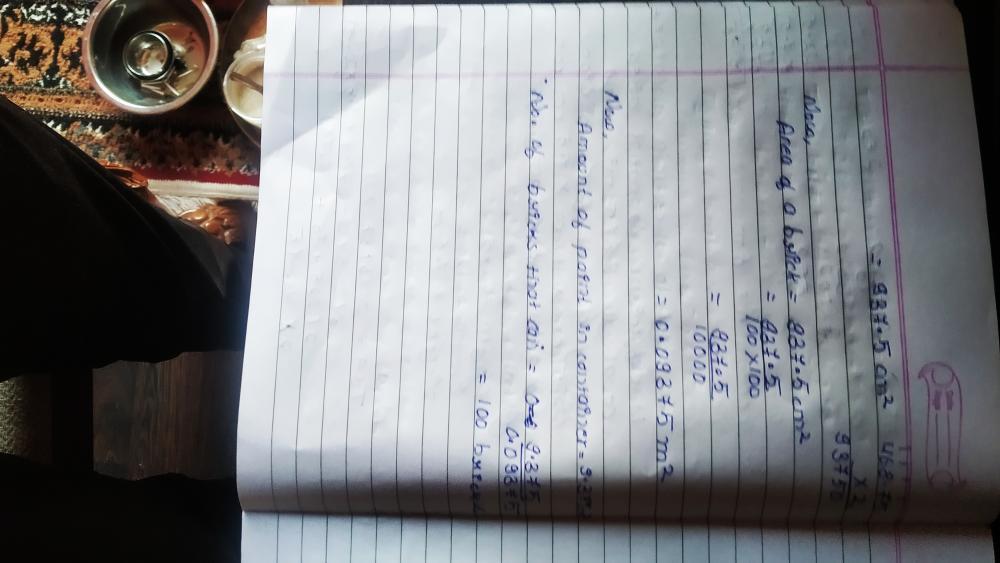 = 937.5 cm² 468.75
× 2
93750
Now,
Area of a brick = 937.5 cm²
= 937.5
100 × 100
= 937.5
10000
= 0.09375 m²
Now,
Amount of paint in container = 9.375
No. of bricks that can = 9.375
0.09375
= 100 bricks